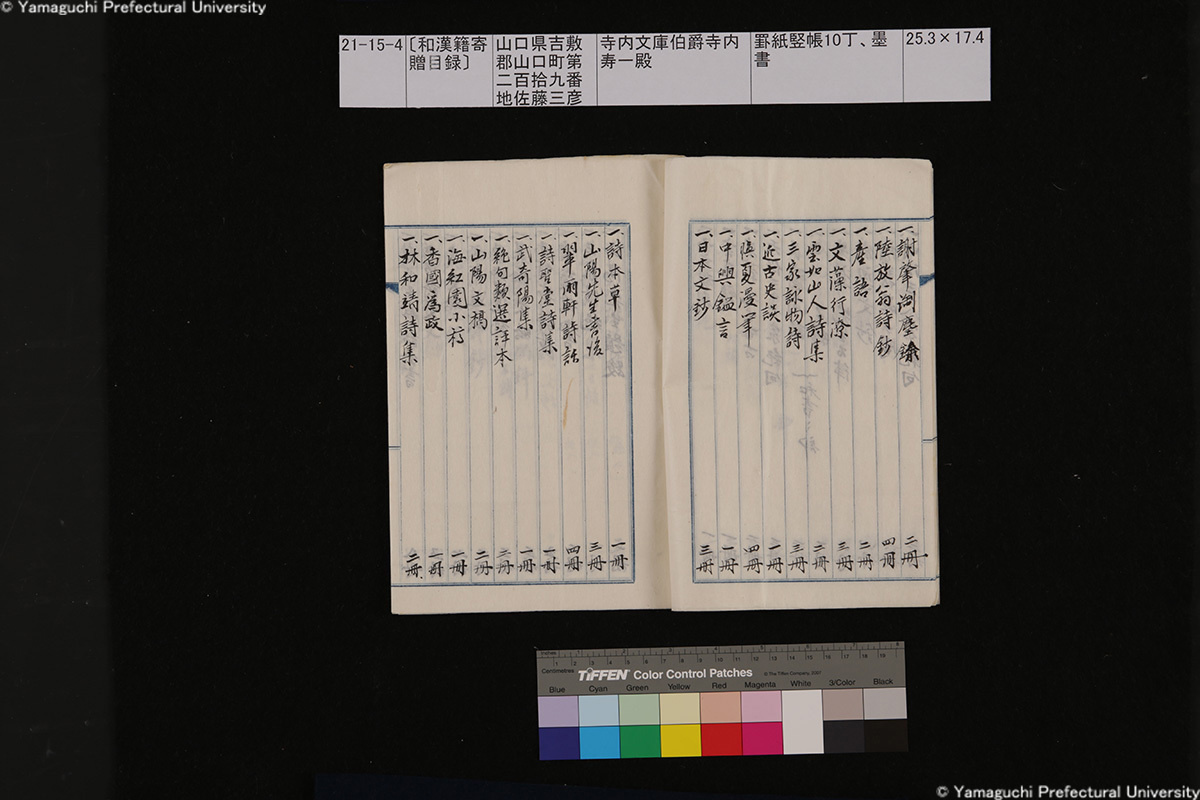 © Yamaguchi Prefectural University
21-15-4
〔和漢籍寄
贈目録〕
山口県吉敷
郡山口町第
二百拾九番
地佐藤三彦
寺内文庫伯爵寺内
寿一殿
罫紙竪帳10丁、墨
書
25.3×17.4
一、謝肇淛塵餘 二冊
一、陸放翁詩鈔 四冊
一、産語 二冊
一、文藻行潦 三冊
一、雲如山人詩集 二冊
一、三家詠物詩 三冊
一、近古史談 一冊
一、消夏漫筆 四冊
一、中興鑑言 一冊
一、日本文鈔 三冊
一、詩本草 一冊
一、山陽先生書後 三冊
一、翠雨軒詩話 四冊
一、詩聖堂詩集 一冊
一、武奇陽集 一冊
一、絶句類選評本 三冊
一、山陽文稿 二冊
一、海紅園小稿 一冊
一、香國為政 一冊
一、林和靖詩集 二冊
Centimetres
TIFFEN Color Control Patches
© The Tiffen Company, 2007
Blue Cyan Green Yellow Red Magenta White 3/Color Black
© Yamaguchi Prefectural University